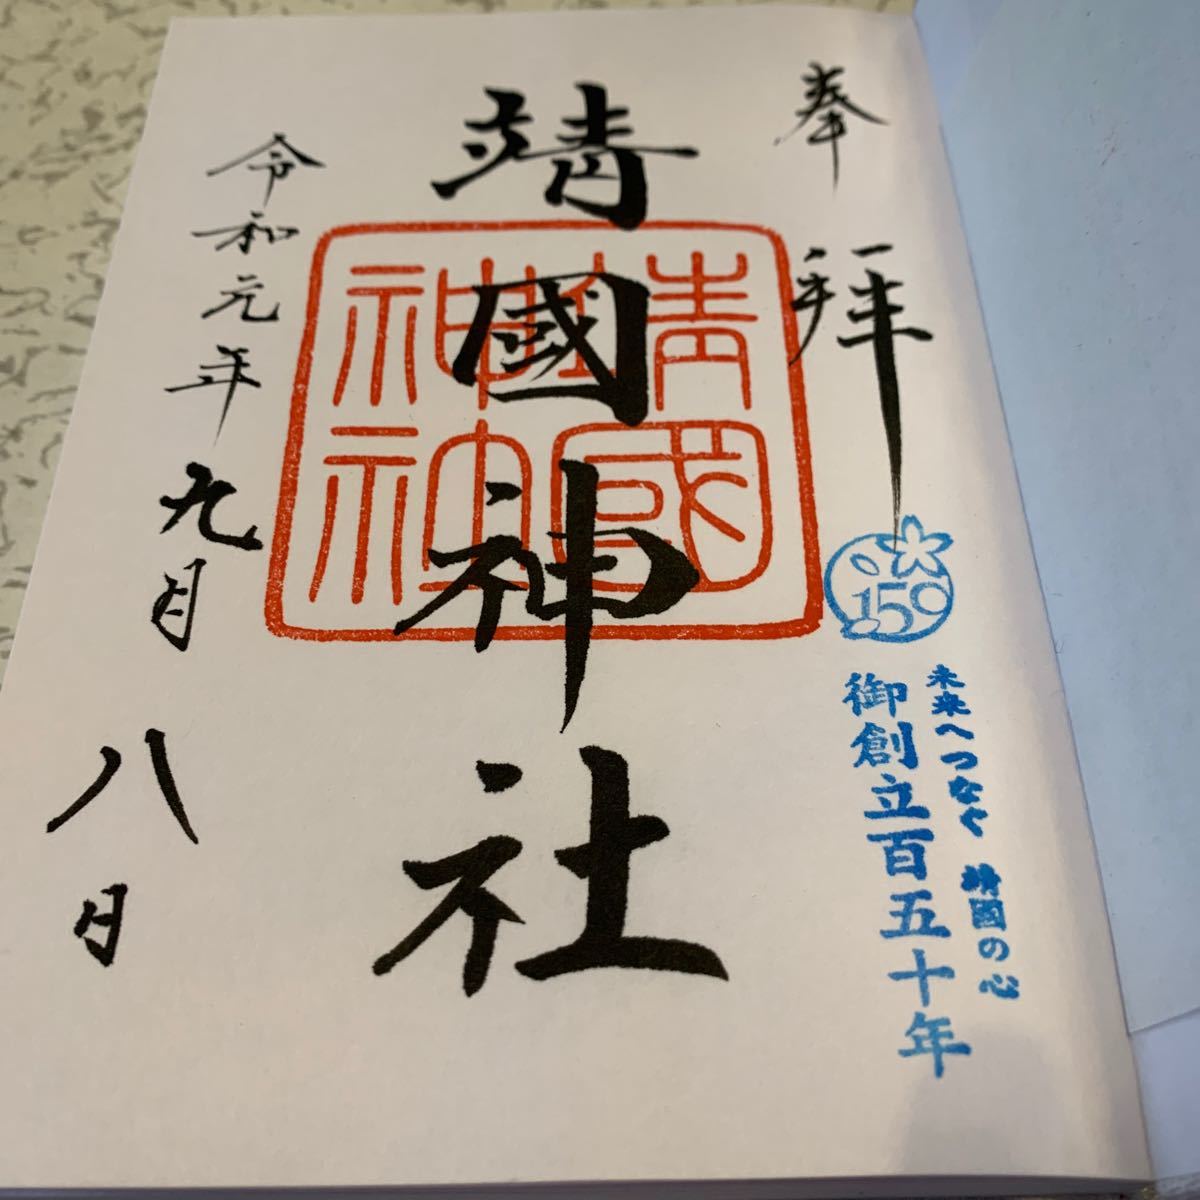 奉拝
150
未来へつなぐ 靖國の心
御創立百五十年
靖國神社
靖國神社
令和元年九月八日